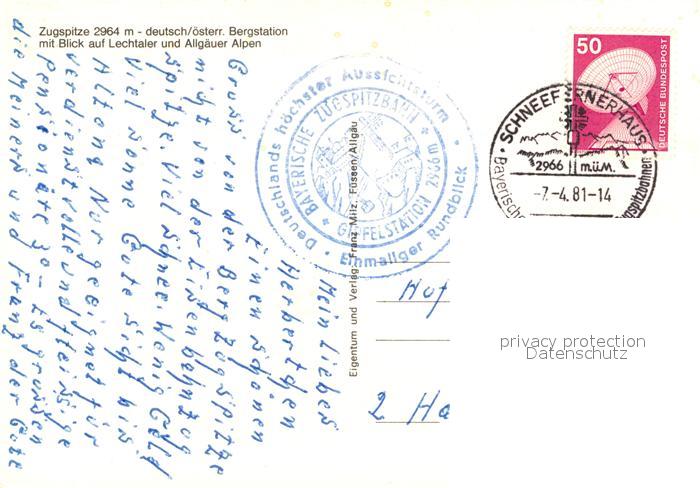 Zugspitze 2964 m - deutsch/österr. Bergstation
mit Blick auf Lechtaler und Allgäuer Alpen
Mein liebes
Herbertchen
Einen schönen
Gruss von der Zugspitze
nicht von der Eisenbahnzug
spitze. Viel Schnee, wenig Geld
viel Sonne Gute Sicht bis
Nur geeignet für
verdienstvolle und fleissige
Pensionäte Es grüssen
die Meinen und Franz der Gute
Eigentum und Verlag: Franz Milz, Füssen/Allgäu
Deutschlands höchster Aussichtsturm
Einmaliger Rundblick
BAYERISCHE ZUGSPITZBAHN
GIPFELSTATION 2966m
50
DEUTSCHE BUNDESPOST
SCHNEEFERNERHAUS
2966 m ü.M.
-7.-4.81-14
Bayerische
Zugspitzbahnen
2 Ha
privacy protection
Datenschutz